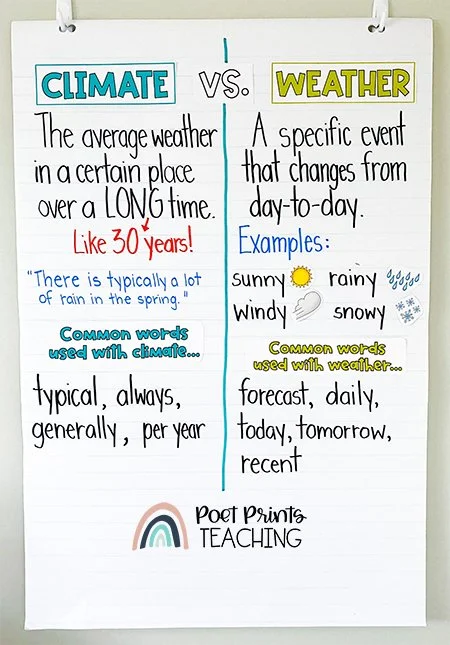 CLIMATE VS. WEATHER
The average weather
in a certain place
over a LONG time.
Like 30 years!
"There is typically a lot
of rain in the spring."
Common words
used with climate...
typical, always,
generally, per year
A specific event
that changes from
day-to-day.
Examples:
sunny rainy
windy snowy
Common words
used with weather...
forecast, daily,
today, tomorrow,
recent
Poet Prints
TEACHING